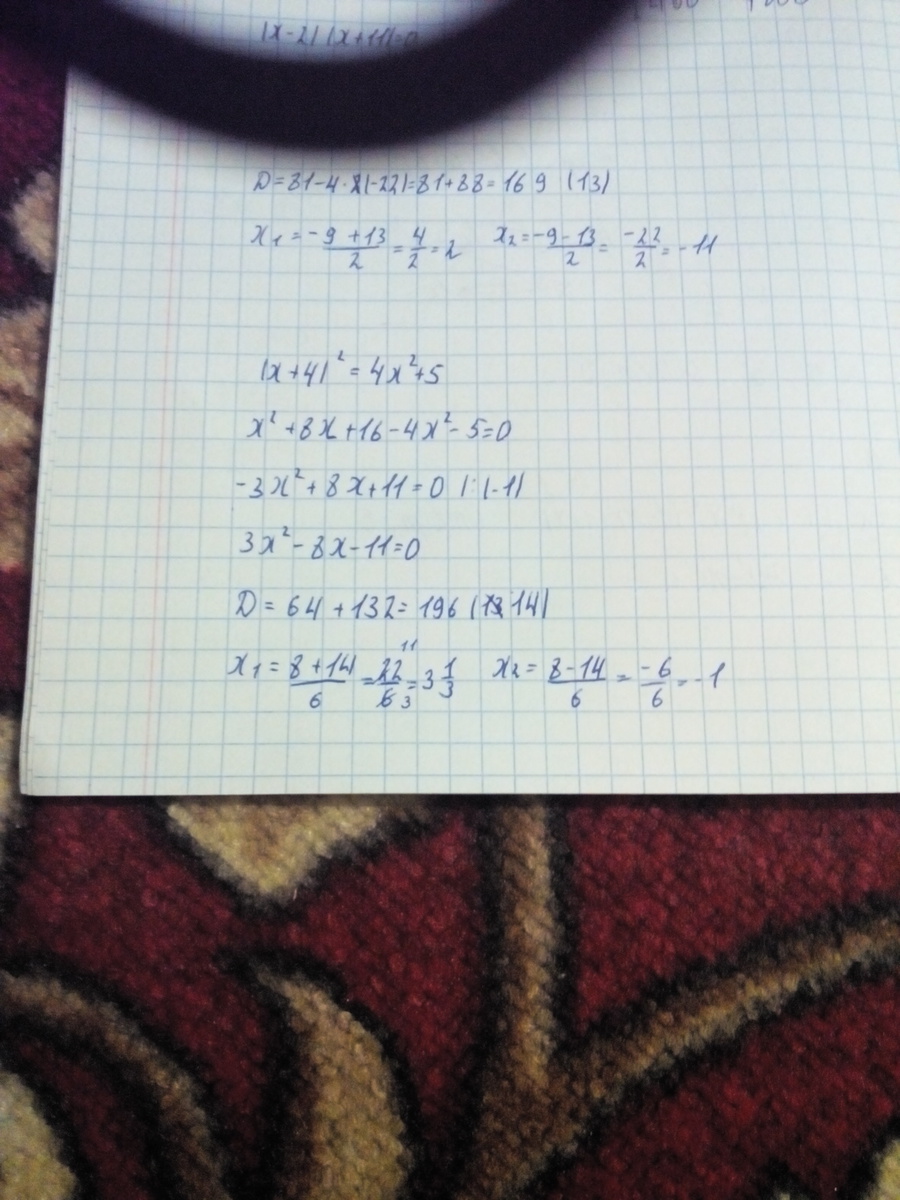 (x-2)(x+11)=0
D=81-4·2(-22)=81+88=169 (13)
x₁=(-9+13)/2=4/2=2 x₂=(-9-13)/2=-22/2=-11
(x+4)²=4x²+5
x²+8x+16-4x²-5=0
-3x²+8x+11=0 |:(-1)
3x²-8x-11=0
D=64+132=196 (14)
x₁=(8+14)/6=22/6=11/3=3 1/3 x₂=(8-14)/6=-6/6=-1